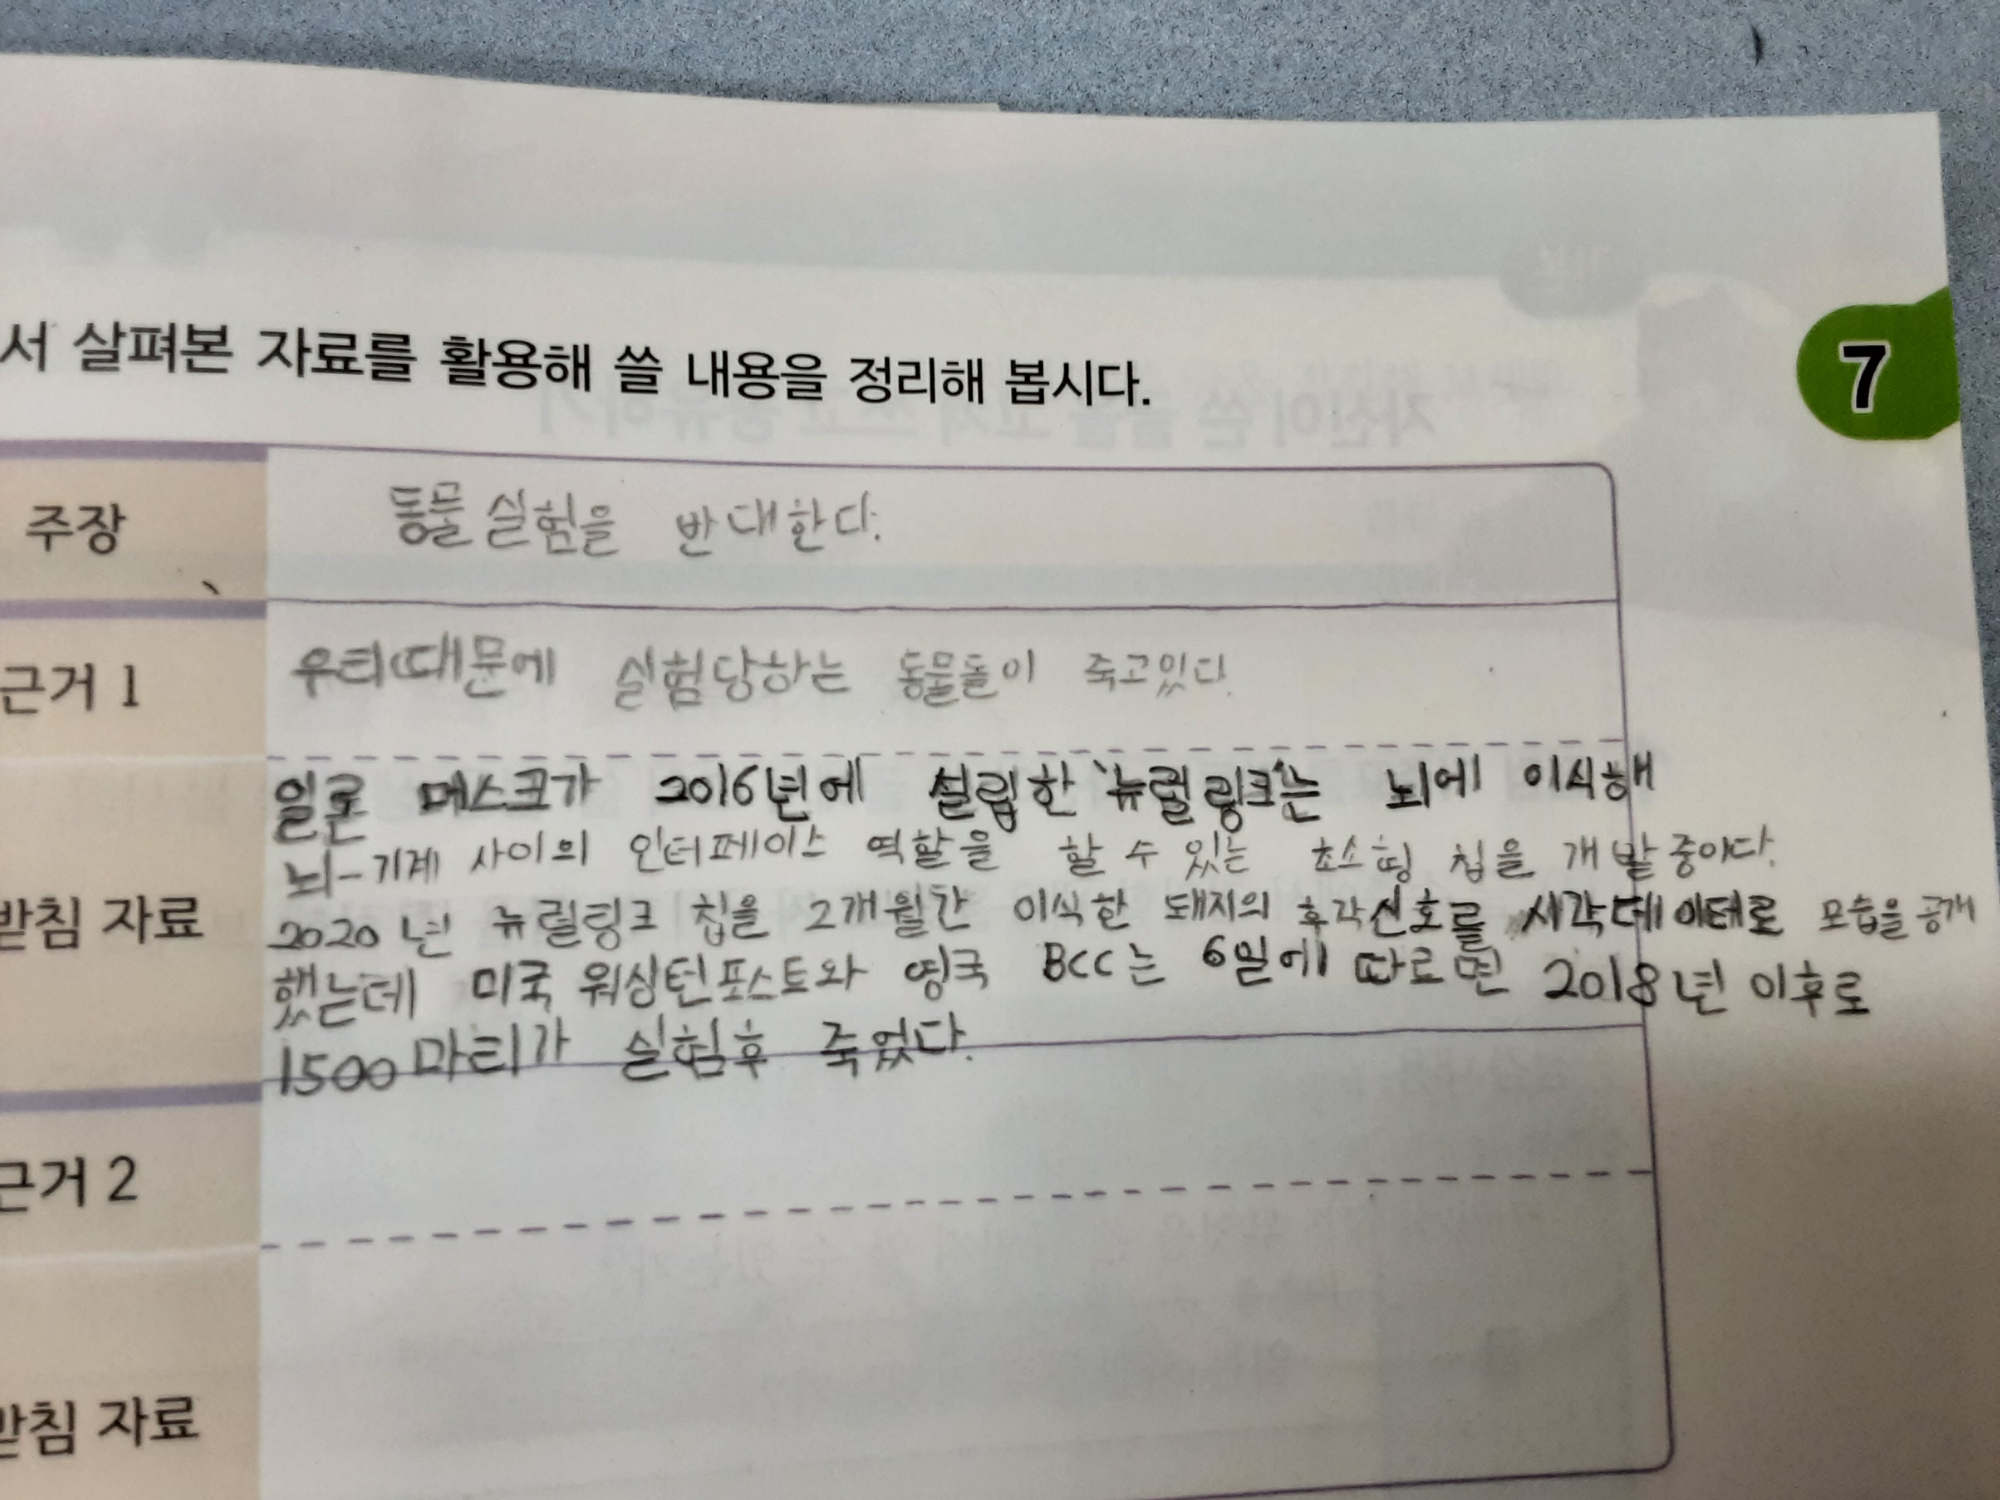 서 살펴본 자료를 활용해 쓸 내용을 정리해 봅시다.
7
주장
동물실험을 반대한다.
근거 1
우리때문에 실험당하는 동물들이 죽고있다.
받침 자료
일론 머스크가 2016년에 설립한 '뉴럴링크'는 뇌에 이식해
뇌-기계 사이의 인터페이스 역할을 할 수 있는 초소형 칩을 개발중이다.
2020년 뉴럴링크 칩을 2개월간 이식한 돼지의 후각신호를 시각데이터로 모습을 공개
했는데 미국 워싱턴포스트와 영국 BCC는 6일에 따르면 2018년 이후로
1500마리가 실험후 죽었다.
근거 2
받침 자료